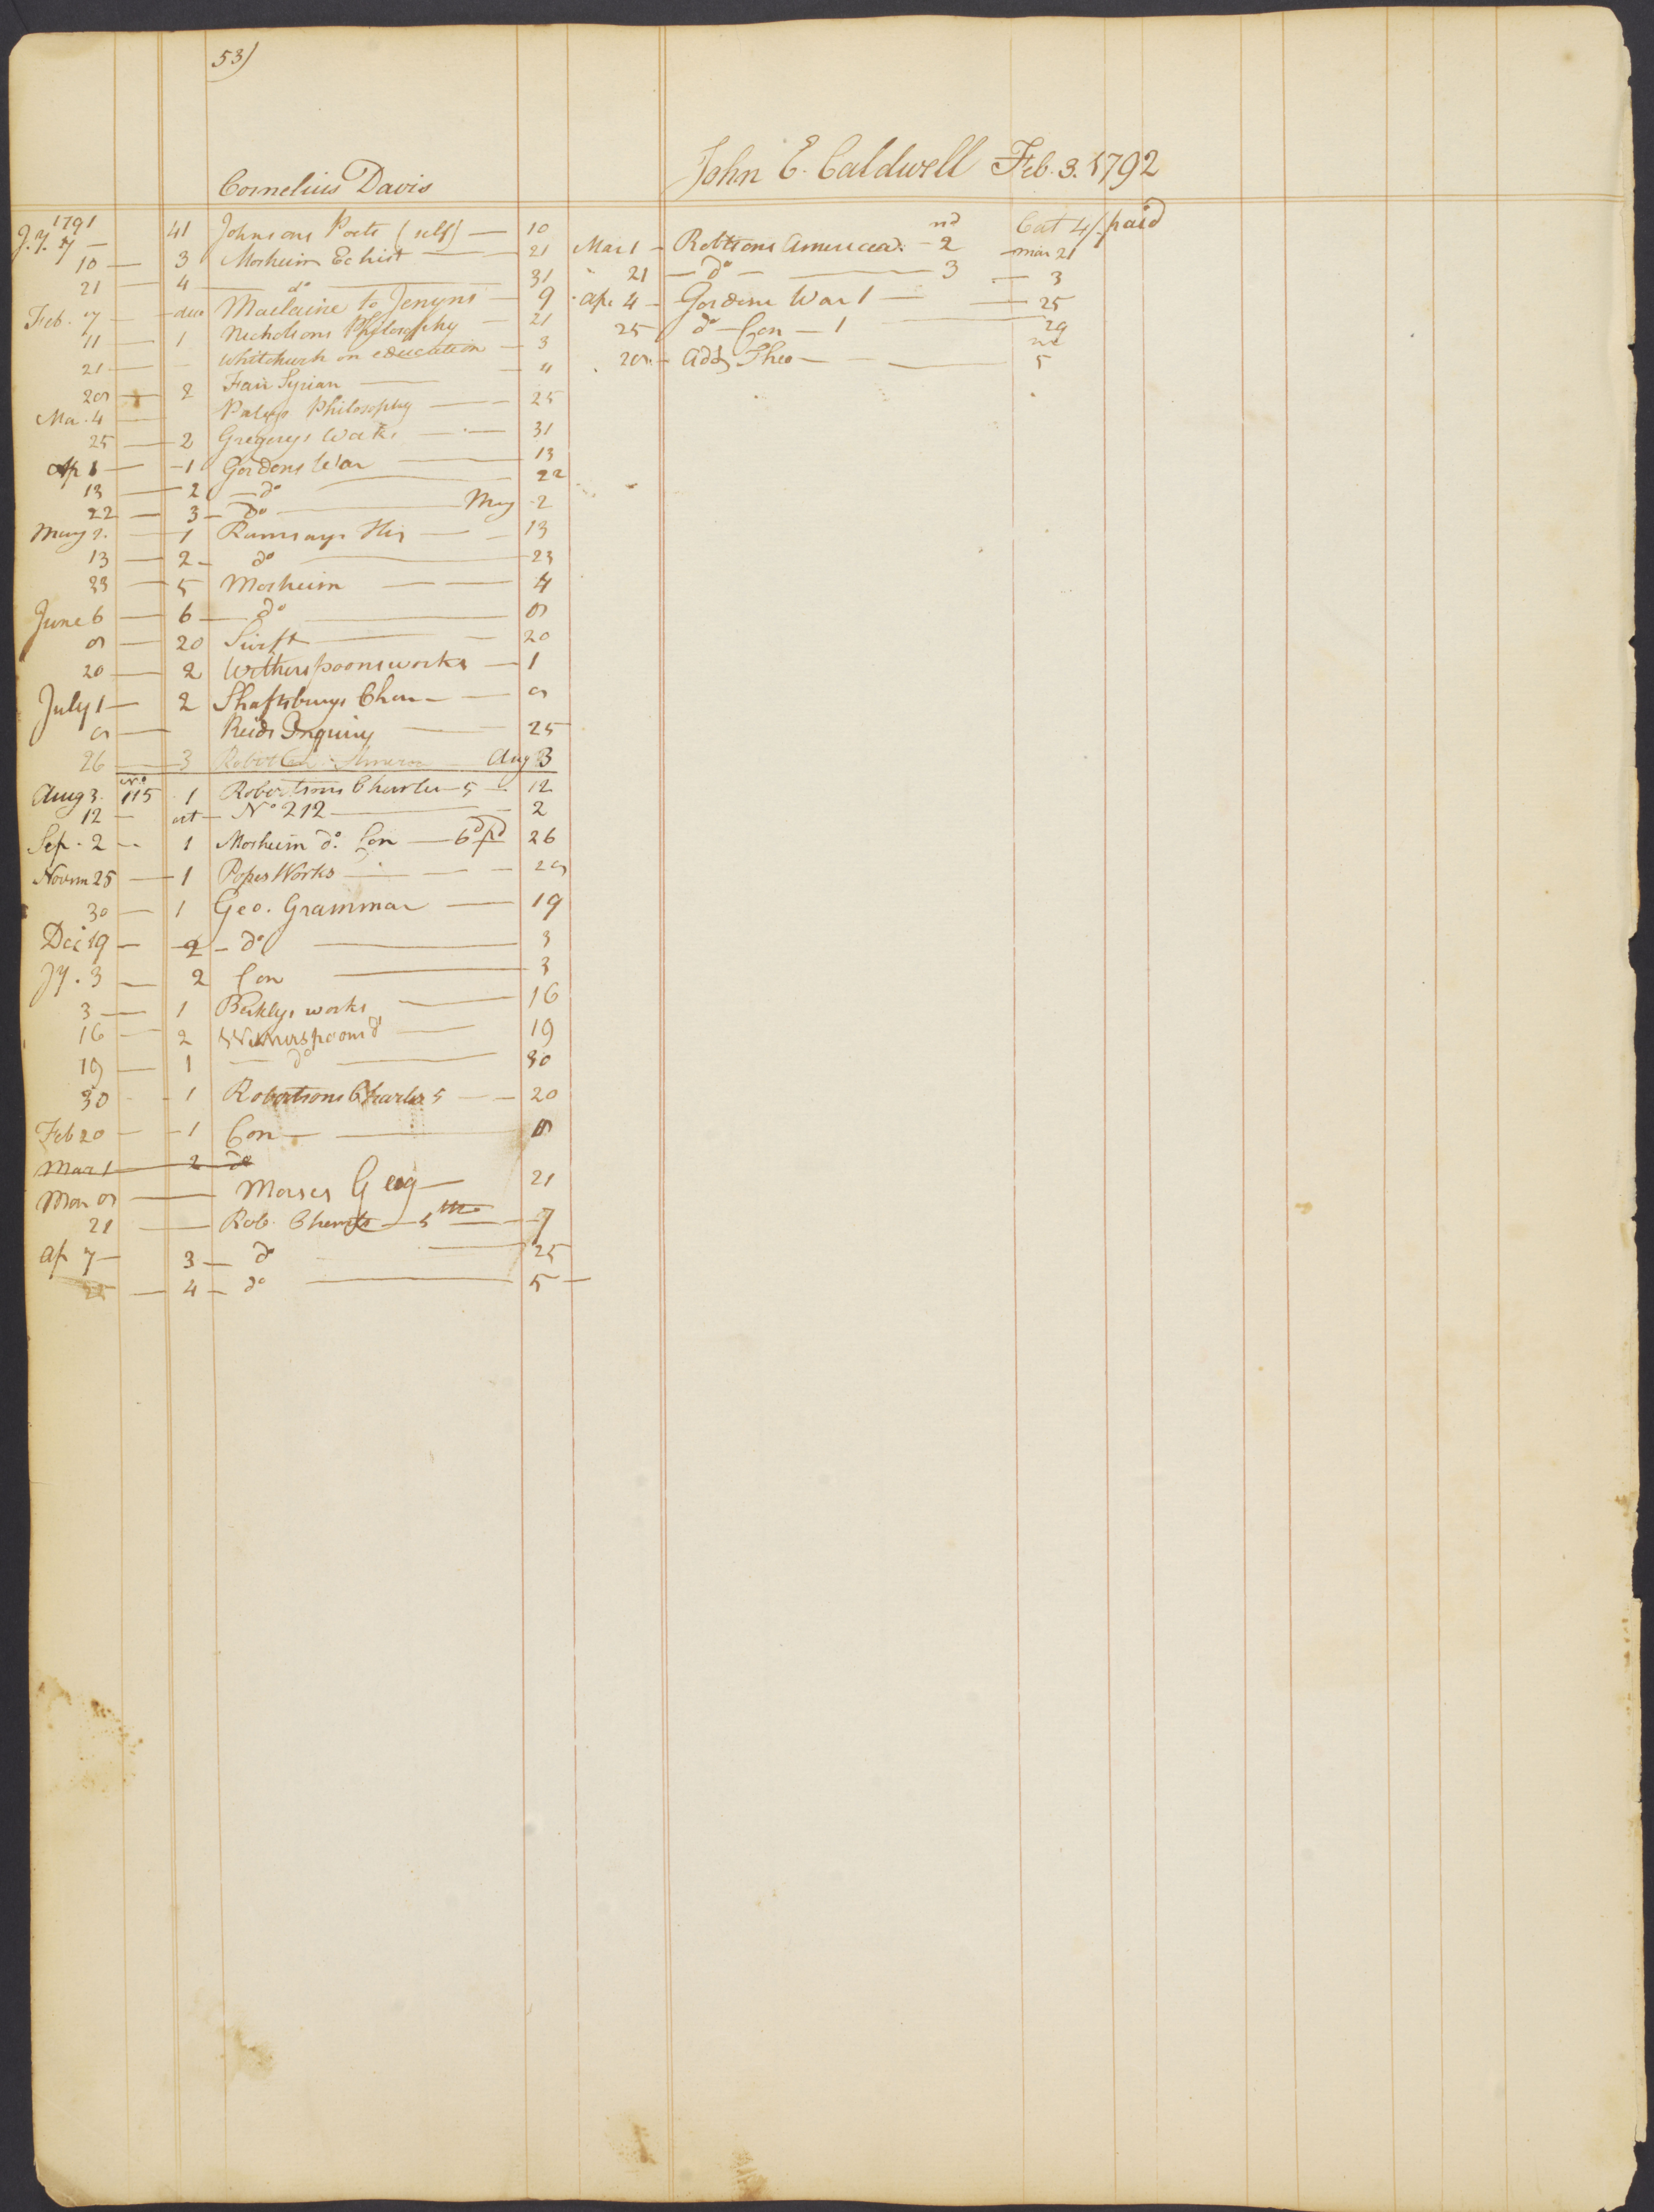 53)
Cornelius Davis
1791
J.y. 7 — 41 Johnsons Poets (self) — 10
10 — 3 Mosheim Ec hist — 21
21 — 4 — do — 31
Feb. 7 — duo Maclaine to Jenyns — 9
11 — 1 Nicholsons Philosophy — 21
21 — Whitchurch on education — 3
28 — 2 Fair Syrian — 4
Mar. 4 — Paleys Philosophy — 25
25 — 2 Gregorys Works — 31
Ap 1 — 1 Gordons War — 13
13 — 2 — do — 22
22 — 3 — Do — May 2
May 2. — 1 Ramsays His — 13
13 — 2 — do — 23
23 — 5 Mosheim — 4
June 6 — 6 — do — 8
8 — 20 Swift — 20
20 — 2 Witherspoons works — 1
July 1 — 2 Shaftsburys Char — 8
8 — Reids Inquiry — 25
26 — 3 America — Aug 3
Aug 3. No 115 1 Robertsons Charles 5 — 12
12 — oct — No 212 — 2
Sep. 2 — 1 Mosheim do. Con — 6d pd 26
Novm 25 — 1 Popes Works — 29
30 — 1 Geo. Grammar — 19
Dec 19 — 2 — do — 3
Jy. 3 — 2 Con — 3
3 — 1 Berklys works — 16
16 — 2 Witherspoons do — 19
19 — 1 — do — 30
30 — 1 Robertsons Charles 5 — 20
Feb 20 — 1 Con — 8
Mar 1 — 2 do
Mar 8 — Morses Geog — 21
21 — Rob. Charles — 5 — 7
Ap 7 — 3 — do — 25
25 — 4 — do — 5 —
John E. Caldwell Feb. 3. 1792
Cat 4/. paid
Mar 1 — Robtsons America. — 2nd — mar 21
21 — do — 3 — 3
Ap. 4 — Gordons War 1 — 25
25 do — Con — 1 — 29
28 — Adds Theo — 5